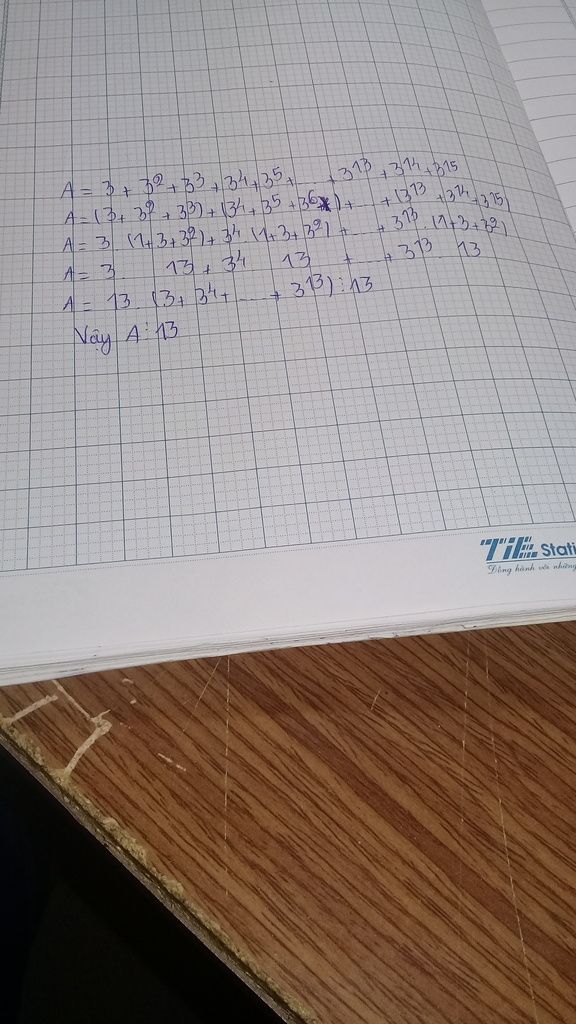 A = 3 + 3² + 3³ + 3⁴ + 3⁵ + ... + 3¹³ + 3¹⁴ + 3¹⁵
A = (3 + 3² + 3³) + (3⁴ + 3⁵ + 3⁶) + ... + (3¹³ + 3¹⁴ + 3¹⁵)
A = 3 . (1+3+3²) + 3⁴ (1+3+3²) + ... + 3¹³ . (1+3+3²)
A = 3 13 + 3⁴ 13 + ... + 3¹³ 13
A = 13 . (3 + 3⁴ + ... + 3¹³) ⋮ 13
Vậy A ⋮ 13
TiE Stati
Đồng hành với những